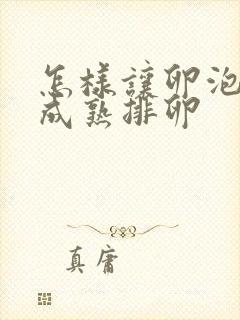 怎樣讓卵泡
成熟排卵
真庸